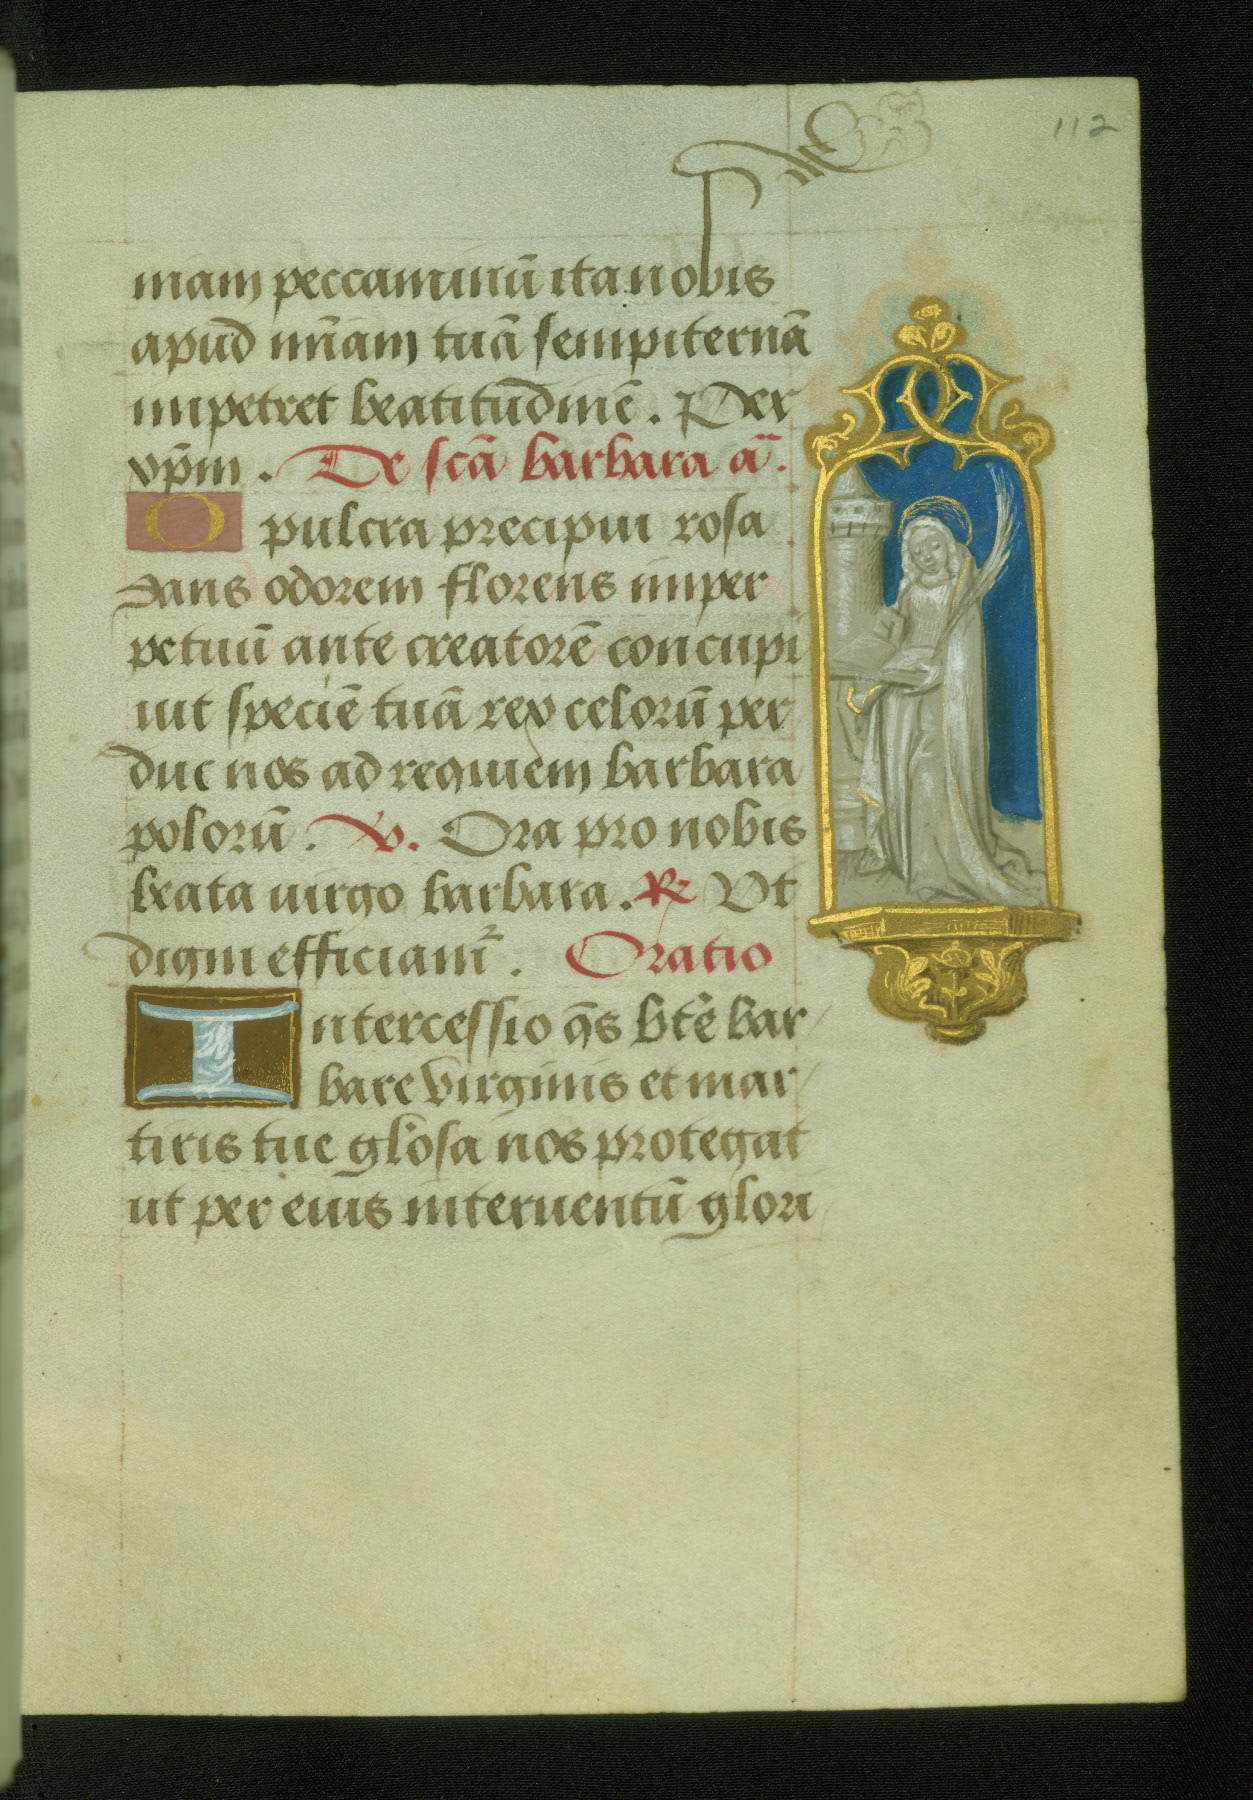 112
niam peccaminū ita nobis
apud mīam tuā sempiternā
impetret beatitudinē. Per
xp̄m. De scā barbara añ.
O pulcra precipui rosa
dans odorem florens imper
petuū ante creatorē concupi
uit speciē tuā rex celorū per
duc nos ad requiem barbara
polorū. V. Ora pro nobis
beata uirgo barbara. R Vt
digni efficiam̄. Oratio
Intercessio q̄s btē bar
bare virginis et mar
tiris tue glōsa nos protegat
ut per eius interuentū glori